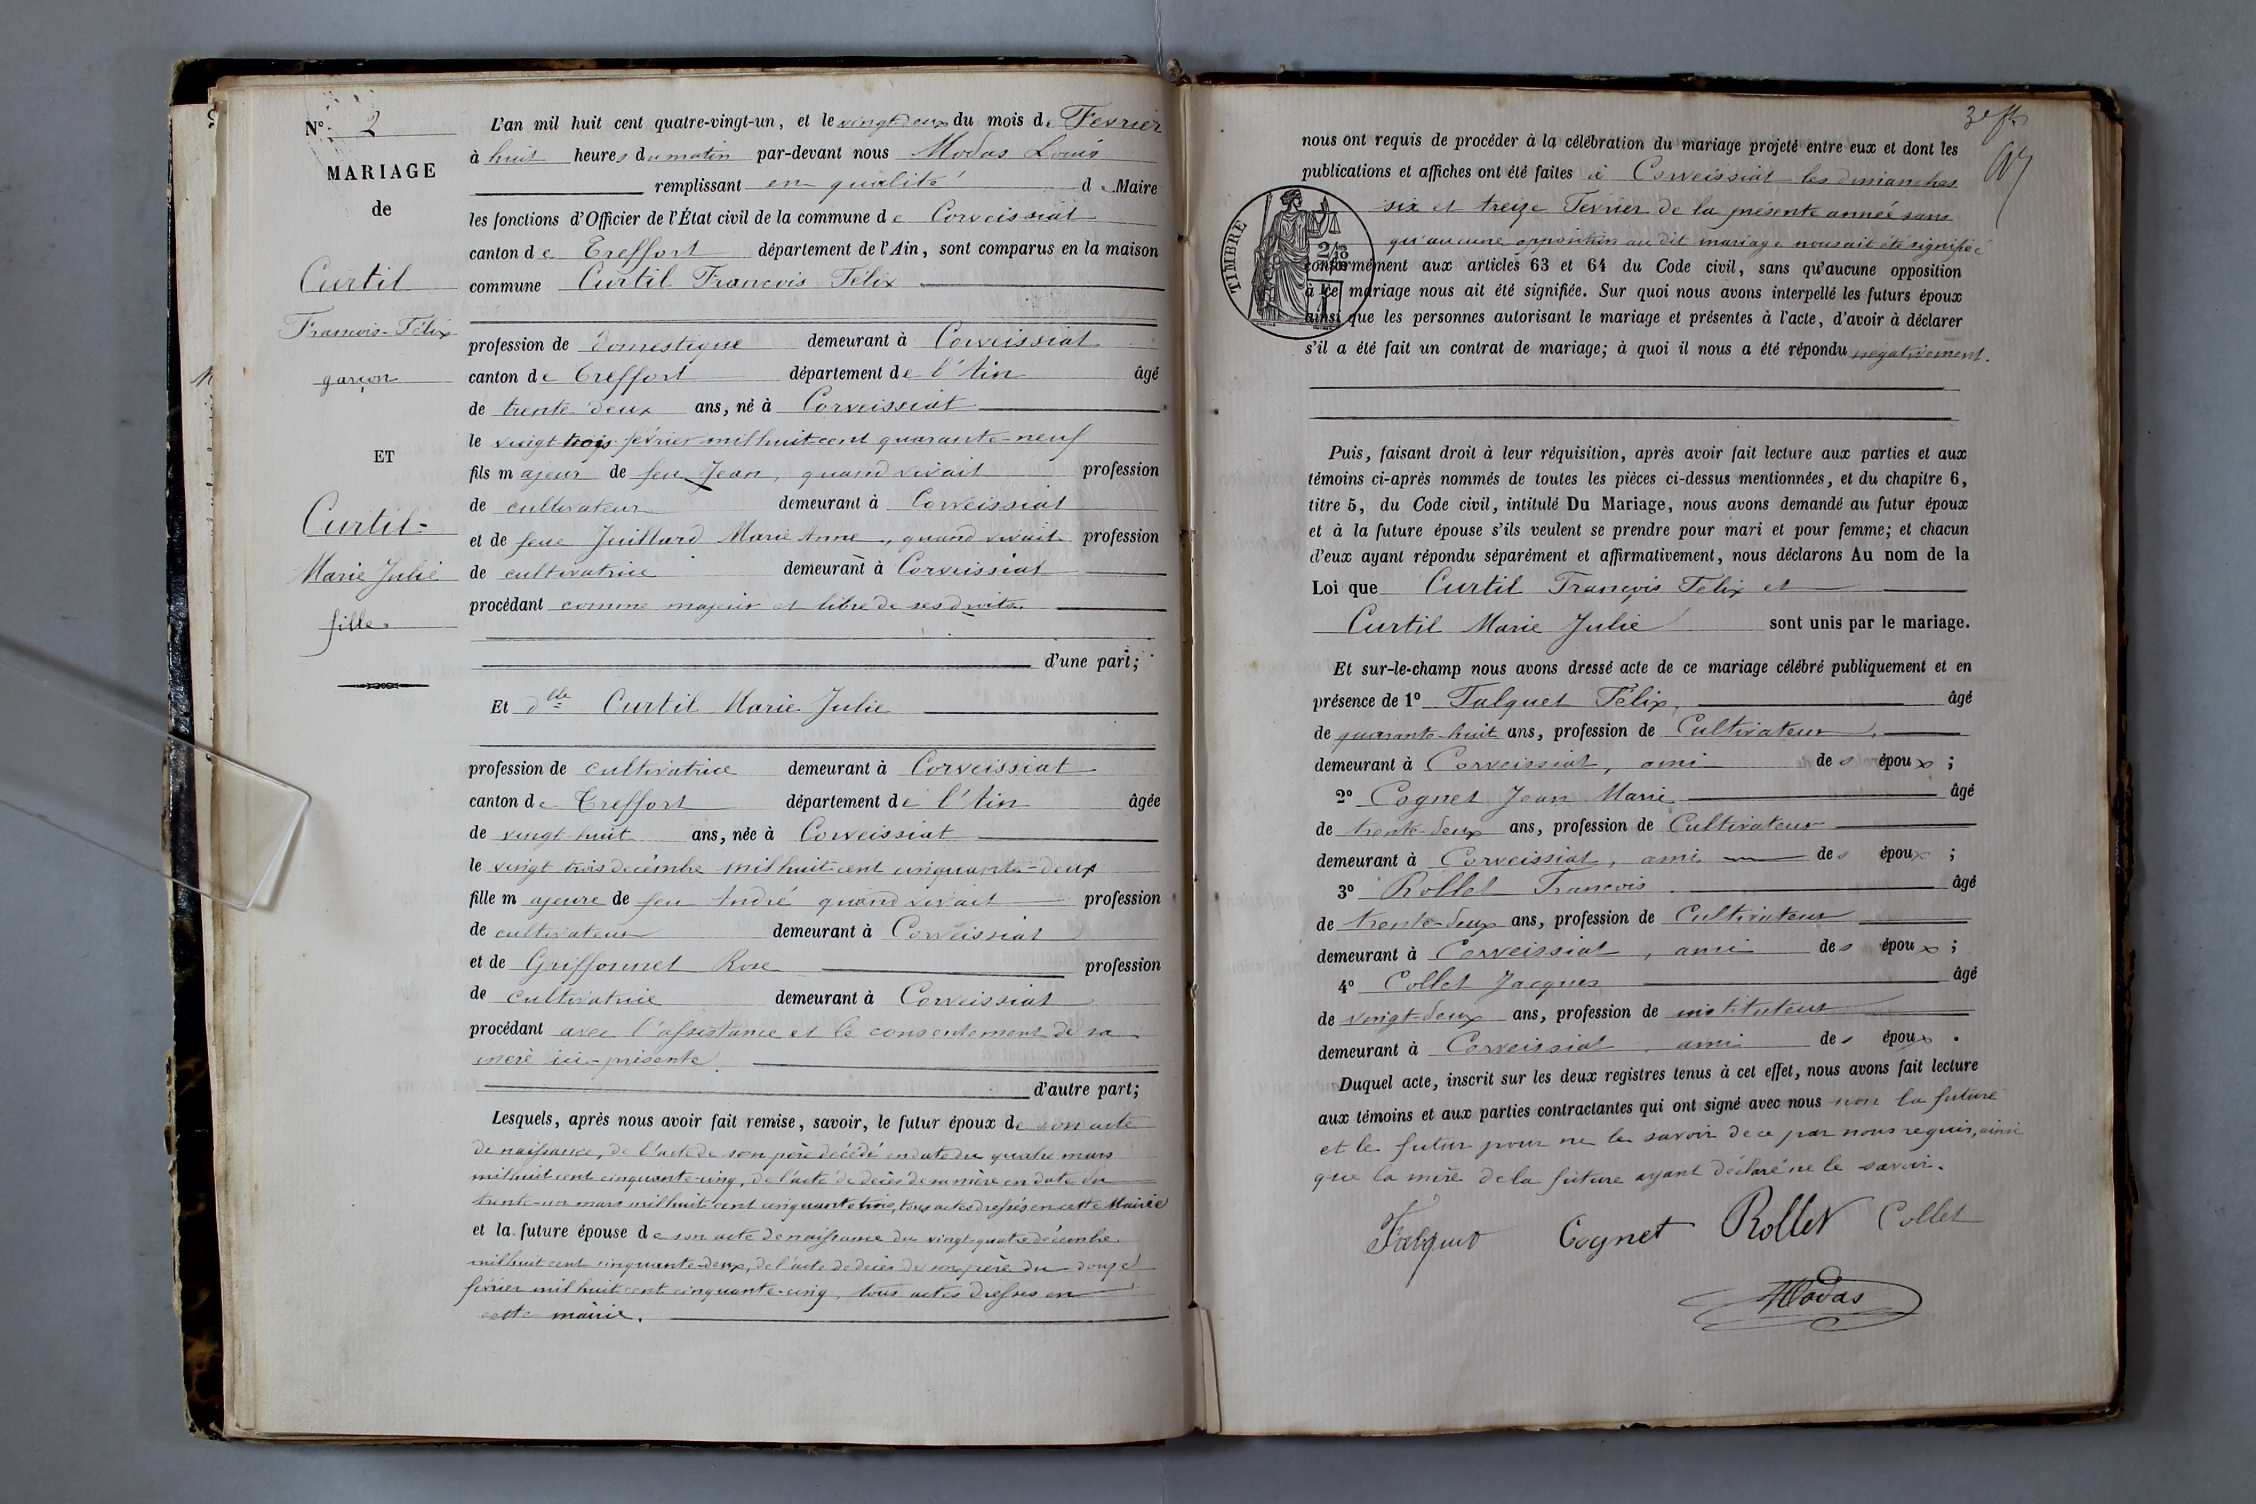 N° 2
MARIAGE
de
Curtil
François-Félix
garçon
ET
Curtil
Marie Julie
fille
L'an mil huit cent quatre-vingt-un, et le vingt-deux du mois de Fevrier
à huit heures du matin par-devant nous Modas Louis
remplissant en qualité d Maire
les fonctions d'Officier de l'État civil de la commune de Corveissiat
canton de Treffort département de l'Ain, sont comparus en la maison
commune Curtil Francois Félix
profession de domestique demeurant à Corveissiat
canton de Treffort département de l'Ain âgé
de trente-deux ans, né à Corveissiat
le vingt-trois février mil huit cent quarante-neuf
fils majeur de feu Jean, quand vivait profession
de cultivateur demeurant à Corveissiat
et de feue Juillard Marie Anne, quand vivait profession
de cultivatrice demeurant à Corveissiat
procédant comme majeur et libre de ses droits.
d'une part;
Et dlle Curtil Marie Julie
profession de cultivatrice demeurant à Corveissiat
canton de Treffort département de l'Ain âgée
de vingt-huit ans, née à Corveissiat
le vingt trois décembre mil huit cent cinquante-deux
fille majeure de feu André quand vivait profession
de cultivateur demeurant à Corveissiat
et de Griffonnet Rose profession
de cultivatrice demeurant à Corveissiat
procédant avec l'assistance et le consentement de sa
mère ici-présente.
d'autre part;
Lesquels, après nous avoir fait remise, savoir, le futur époux de son acte
de naissance, de l'acte de son père décédé en date du quatre mars
mil huit cent cinquante-cinq, de l'acte de décès de sa mère en date du
trente-un mars mil huit cent cinquante trois, tous actes dressés en cette Mairie
et la future épouse de son acte de naissance du vingt quatre décembre
mil huit cent cinquante-deux, de l'acte de décès de son père du douze
février mil huit cent cinquante-cinq, tous actes dressés en
cette mairie.
nous ont requis de procéder à la célébration du mariage projeté entre eux et dont les
publications et affiches ont été faites à Corveissiat les dimanches
six et treize Février de la présente année sans
qu'aucune opposition au dit mariage nous ait été signifiée
TIMBRE
conformément aux articles 63 et 64 du Code civil, sans qu'aucune opposition
à ce mariage nous ait été signifiée. Sur quoi nous avons interpellé les futurs époux
ainsi que les personnes autorisant le mariage et présentes à l'acte, d'avoir à déclarer
s'il a été fait un contrat de mariage; à quoi il nous a été répondu négativement.
Puis, faisant droit à leur réquisition, après avoir fait lecture aux parties et aux
témoins ci-après nommés de toutes les pièces ci-dessus mentionnées, et du chapitre 6,
titre 5, du Code civil, intitulé Du Mariage, nous avons demandé au futur époux
et à la future épouse s'ils veulent se prendre pour mari et pour femme; et chacun
d'eux ayant répondu séparément et affirmativement, nous déclarons Au nom de la
Loi que Curtil François Félix et
Curtil Marie Julie sont unis par le mariage.
Et sur-le-champ nous avons dressé acte de ce mariage célébré publiquement et en
présence de 1° Falquet Félix, âgé
de quarante-huit ans, profession de Cultivateur,
demeurant à Corveissiat, ami des époux;
2° Cognet Jean Marie âgé
de trente-deux ans, profession de Cultivateur
demeurant à Corveissiat, ami des époux;
3° Rollet Francois âgé
de trente-deux ans, profession de Cultivateur
demeurant à Corveissiat, ami des époux;
4° Collet Jacques âgé
de vingt-deux ans, profession de instituteur
demeurant à Corveissiat, ami des époux.
Duquel acte, inscrit sur les deux registres tenus à cet effet, nous avons fait lecture
aux témoins et aux parties contractantes qui ont signé avec nous non la future
et le futur pour ne le savoir de ce par nous requis, ainsi
que la mère de la future ayant déclaré ne le savoir.
Falquet Cognet Rollet Collet
Modas